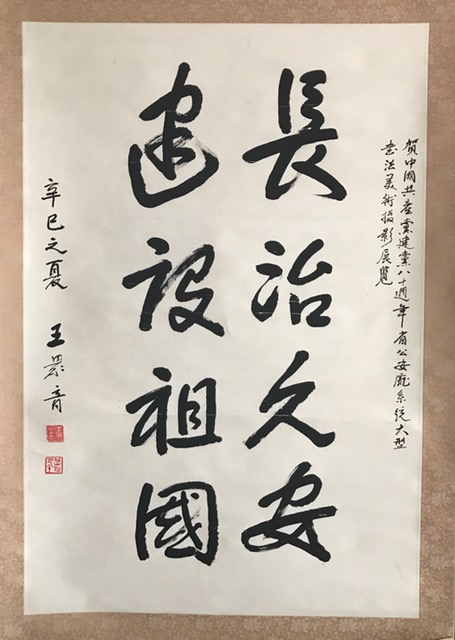 賀中國共產黨建黨八十週年省公安廳系統大型
書法美術攝影展覽
長治久安
建設祖國
辛巳之夏 王眾音